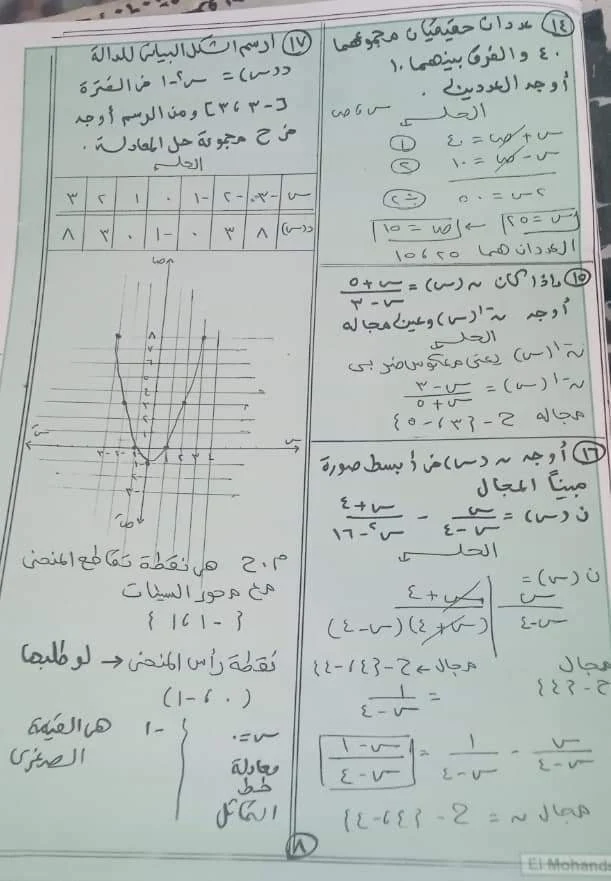 ١٤ عددان حقيقيان مجموعهما
٤٠ والفرق بينهما ١٠
أوجد العددين .
الحل
س + ص = ٤٠ ①
س - ص = ١٠ ②
٢س = ٥٠ ÷٢
س = ٢٥ ← ص = ١٥
العددان هما ٢٥ ، ١٥
١٥ إذا كان ن(س) = س + ٥ / س - ٣
أوجد ن⁻¹(س) وعين مجاله
الحل
ن⁻¹(س) يعني معكوس ضربي
ن⁻¹(س) = س - ٣ / س + ٥
مجاله ح - {٣ ، -٥}
١٦ أوجد ن(س) في أبسط صورة
مبيناً المجال
ن(س) = س / س - ٤ - س + ٤ / س² - ١٦
الحل
ن(س) =
س / س - ٤
س + ٤ / (س + ٤)(س - ٤)
مجال
ح - {٤}
مجال ← ح - {٤ ، -٤}
= ١ / س - ٤
س / س - ٤ - ١ / س - ٤ = س - ١ / س - ٤
مجال ن = ح - {٤ ، -٤}
١٧ ارسم الشكل البياني للدالة
د(س) = س² - ١ في الفترة
[-٣ ، ٣] ومن الرسم أوجد
في ح مجموعة حل المعادلة .
الحل
س -٣ -٢ -١ ٠ ١ ٢ ٣
د(س) ٨ ٣ ٠ -١ ٠ ٣ ٨
م.ح هي نقطة تقاطع المنحنى
مع محور السينات
{ ١ ، -١ }
نقطة رأس المنحنى ← لو طلبها
(٠ ، -١)
س = ٠
معادلة
خط
التماثل
-١ هي القيمة
الصغرى
٨
El Mohand